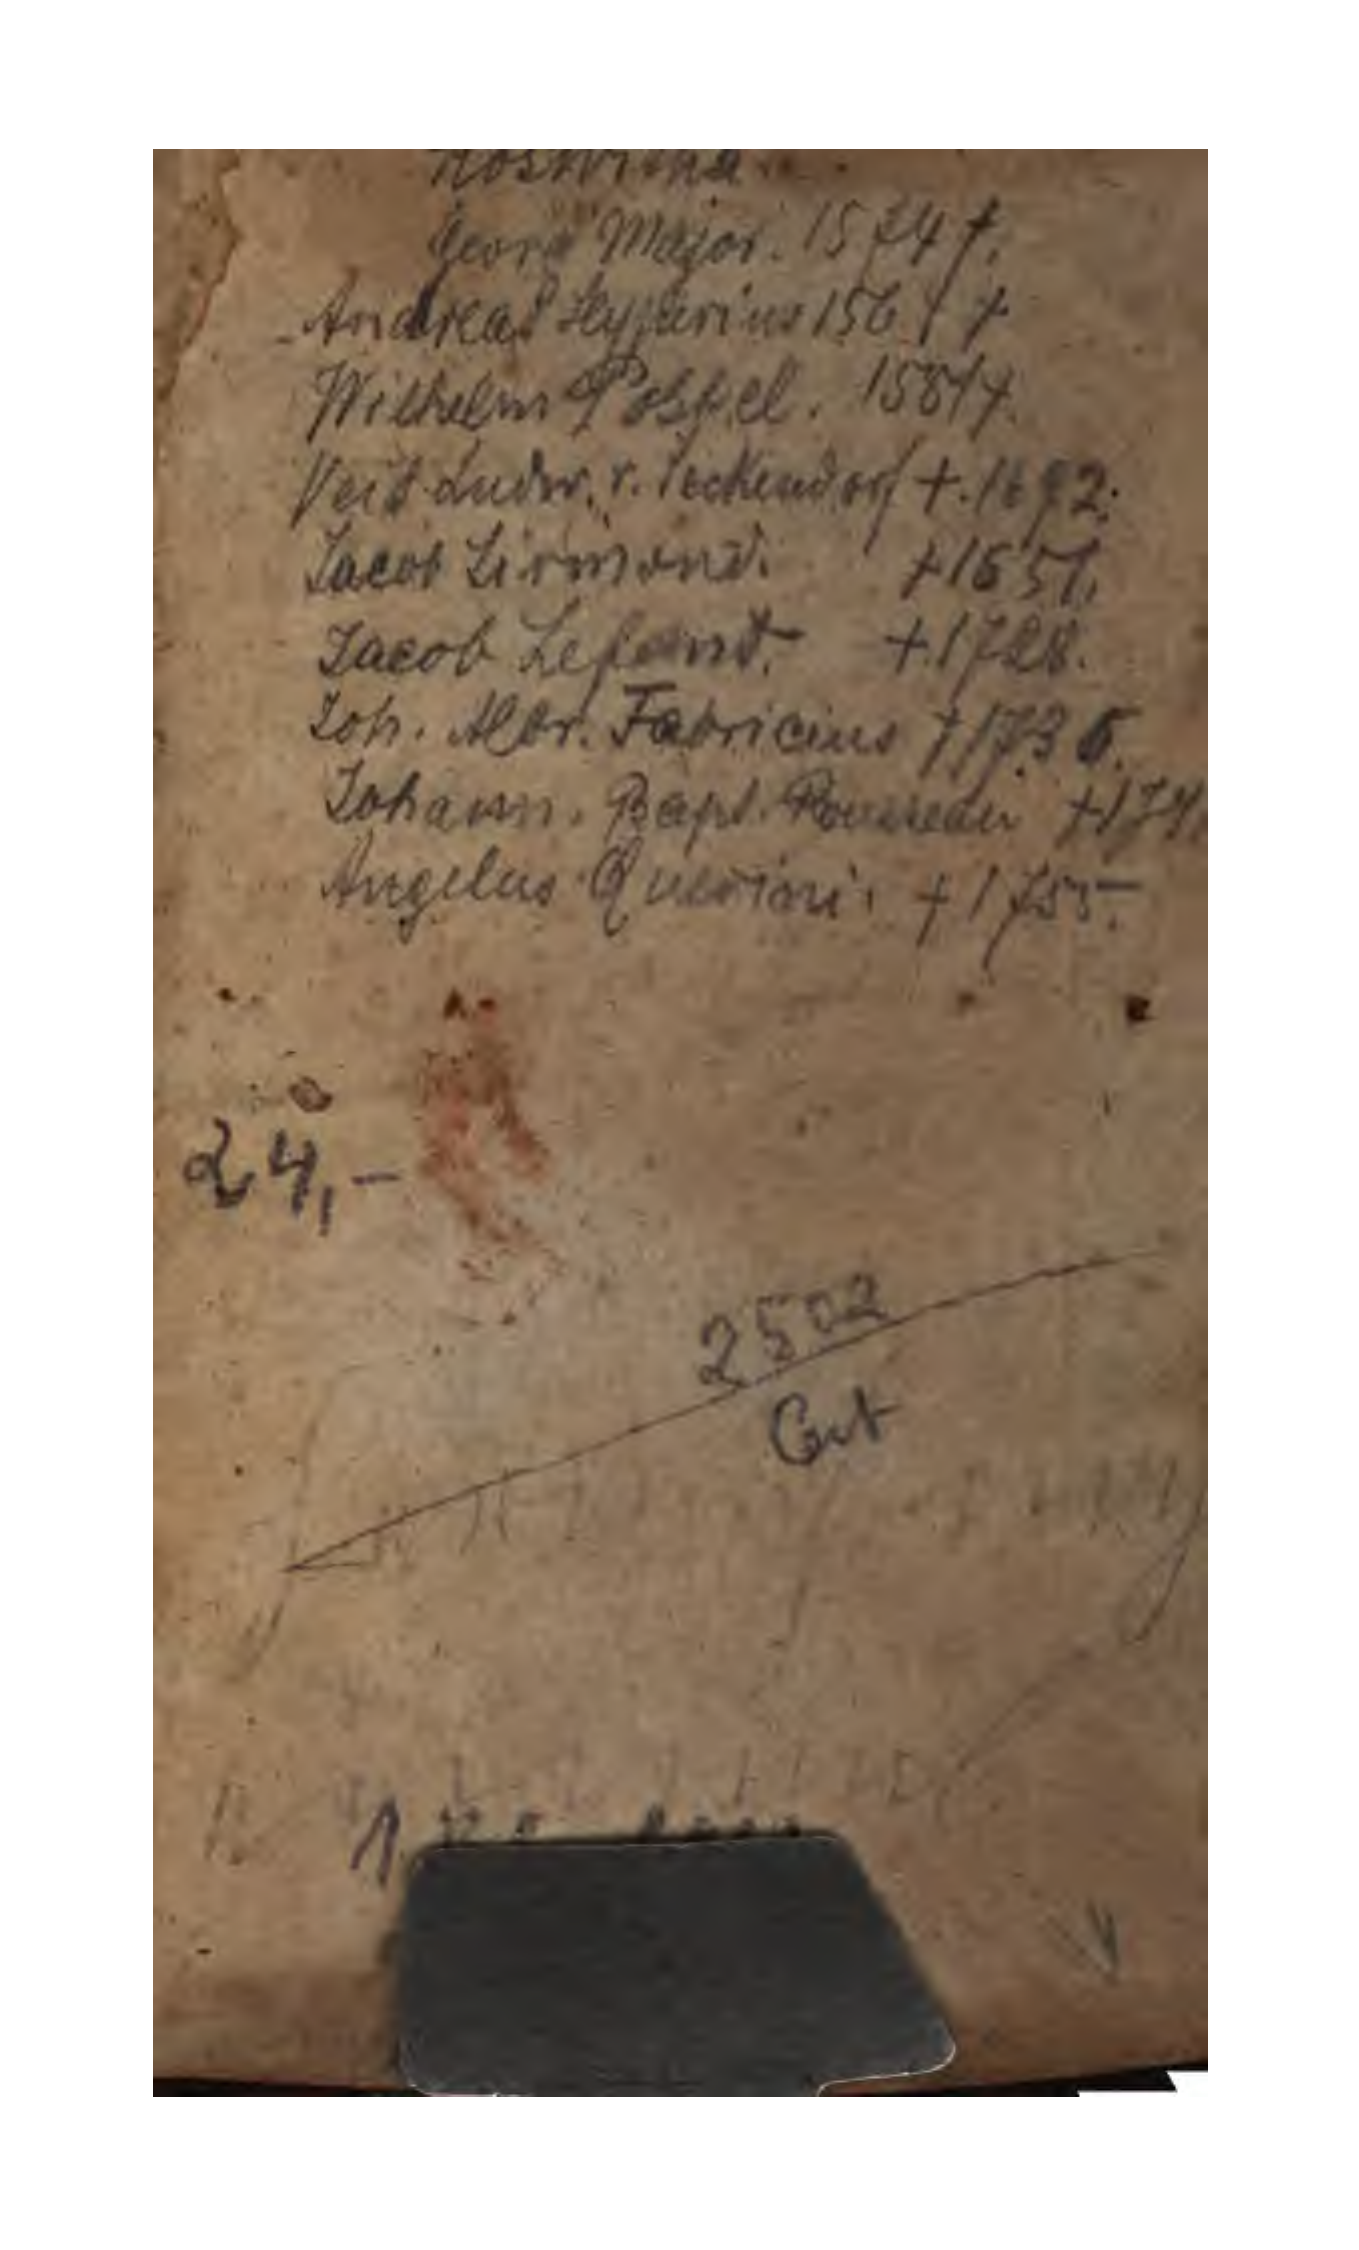 Georg Major. 1574 †.
Andreas Hyperius 1564 †
Wilhelm 1581 †.
Veit Ludw. v. Seckendorf †. 1692.
Jacob Sirmond. † 1651.
Jacob Lefant. † 1728.
Joh. Albr. Fabricius † 1736.
Johann. Bapt. Rousseau
Angelus Quirini. † 1755.
24,-
2502